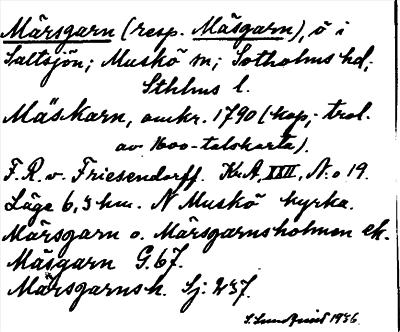 Märsgarn (resp. Mäsgarn), ö i
Saltsjön; Muskö sn; Sotholms hd;
Sthlms l.
Mäskarn, omkr. 1790 (kop, trol.
av 1600-talskarta).
F. R. v. Friesendorff. Kr.A, XXII, N:o 19.
Läge 6,3 km. N Muskö kyrka.
Märsgarn o. Märsgarnsholmen ek.
Mäsgarn G.67.
Märsgarnsh. Sj: 237.
S. Lundqvist 1936.